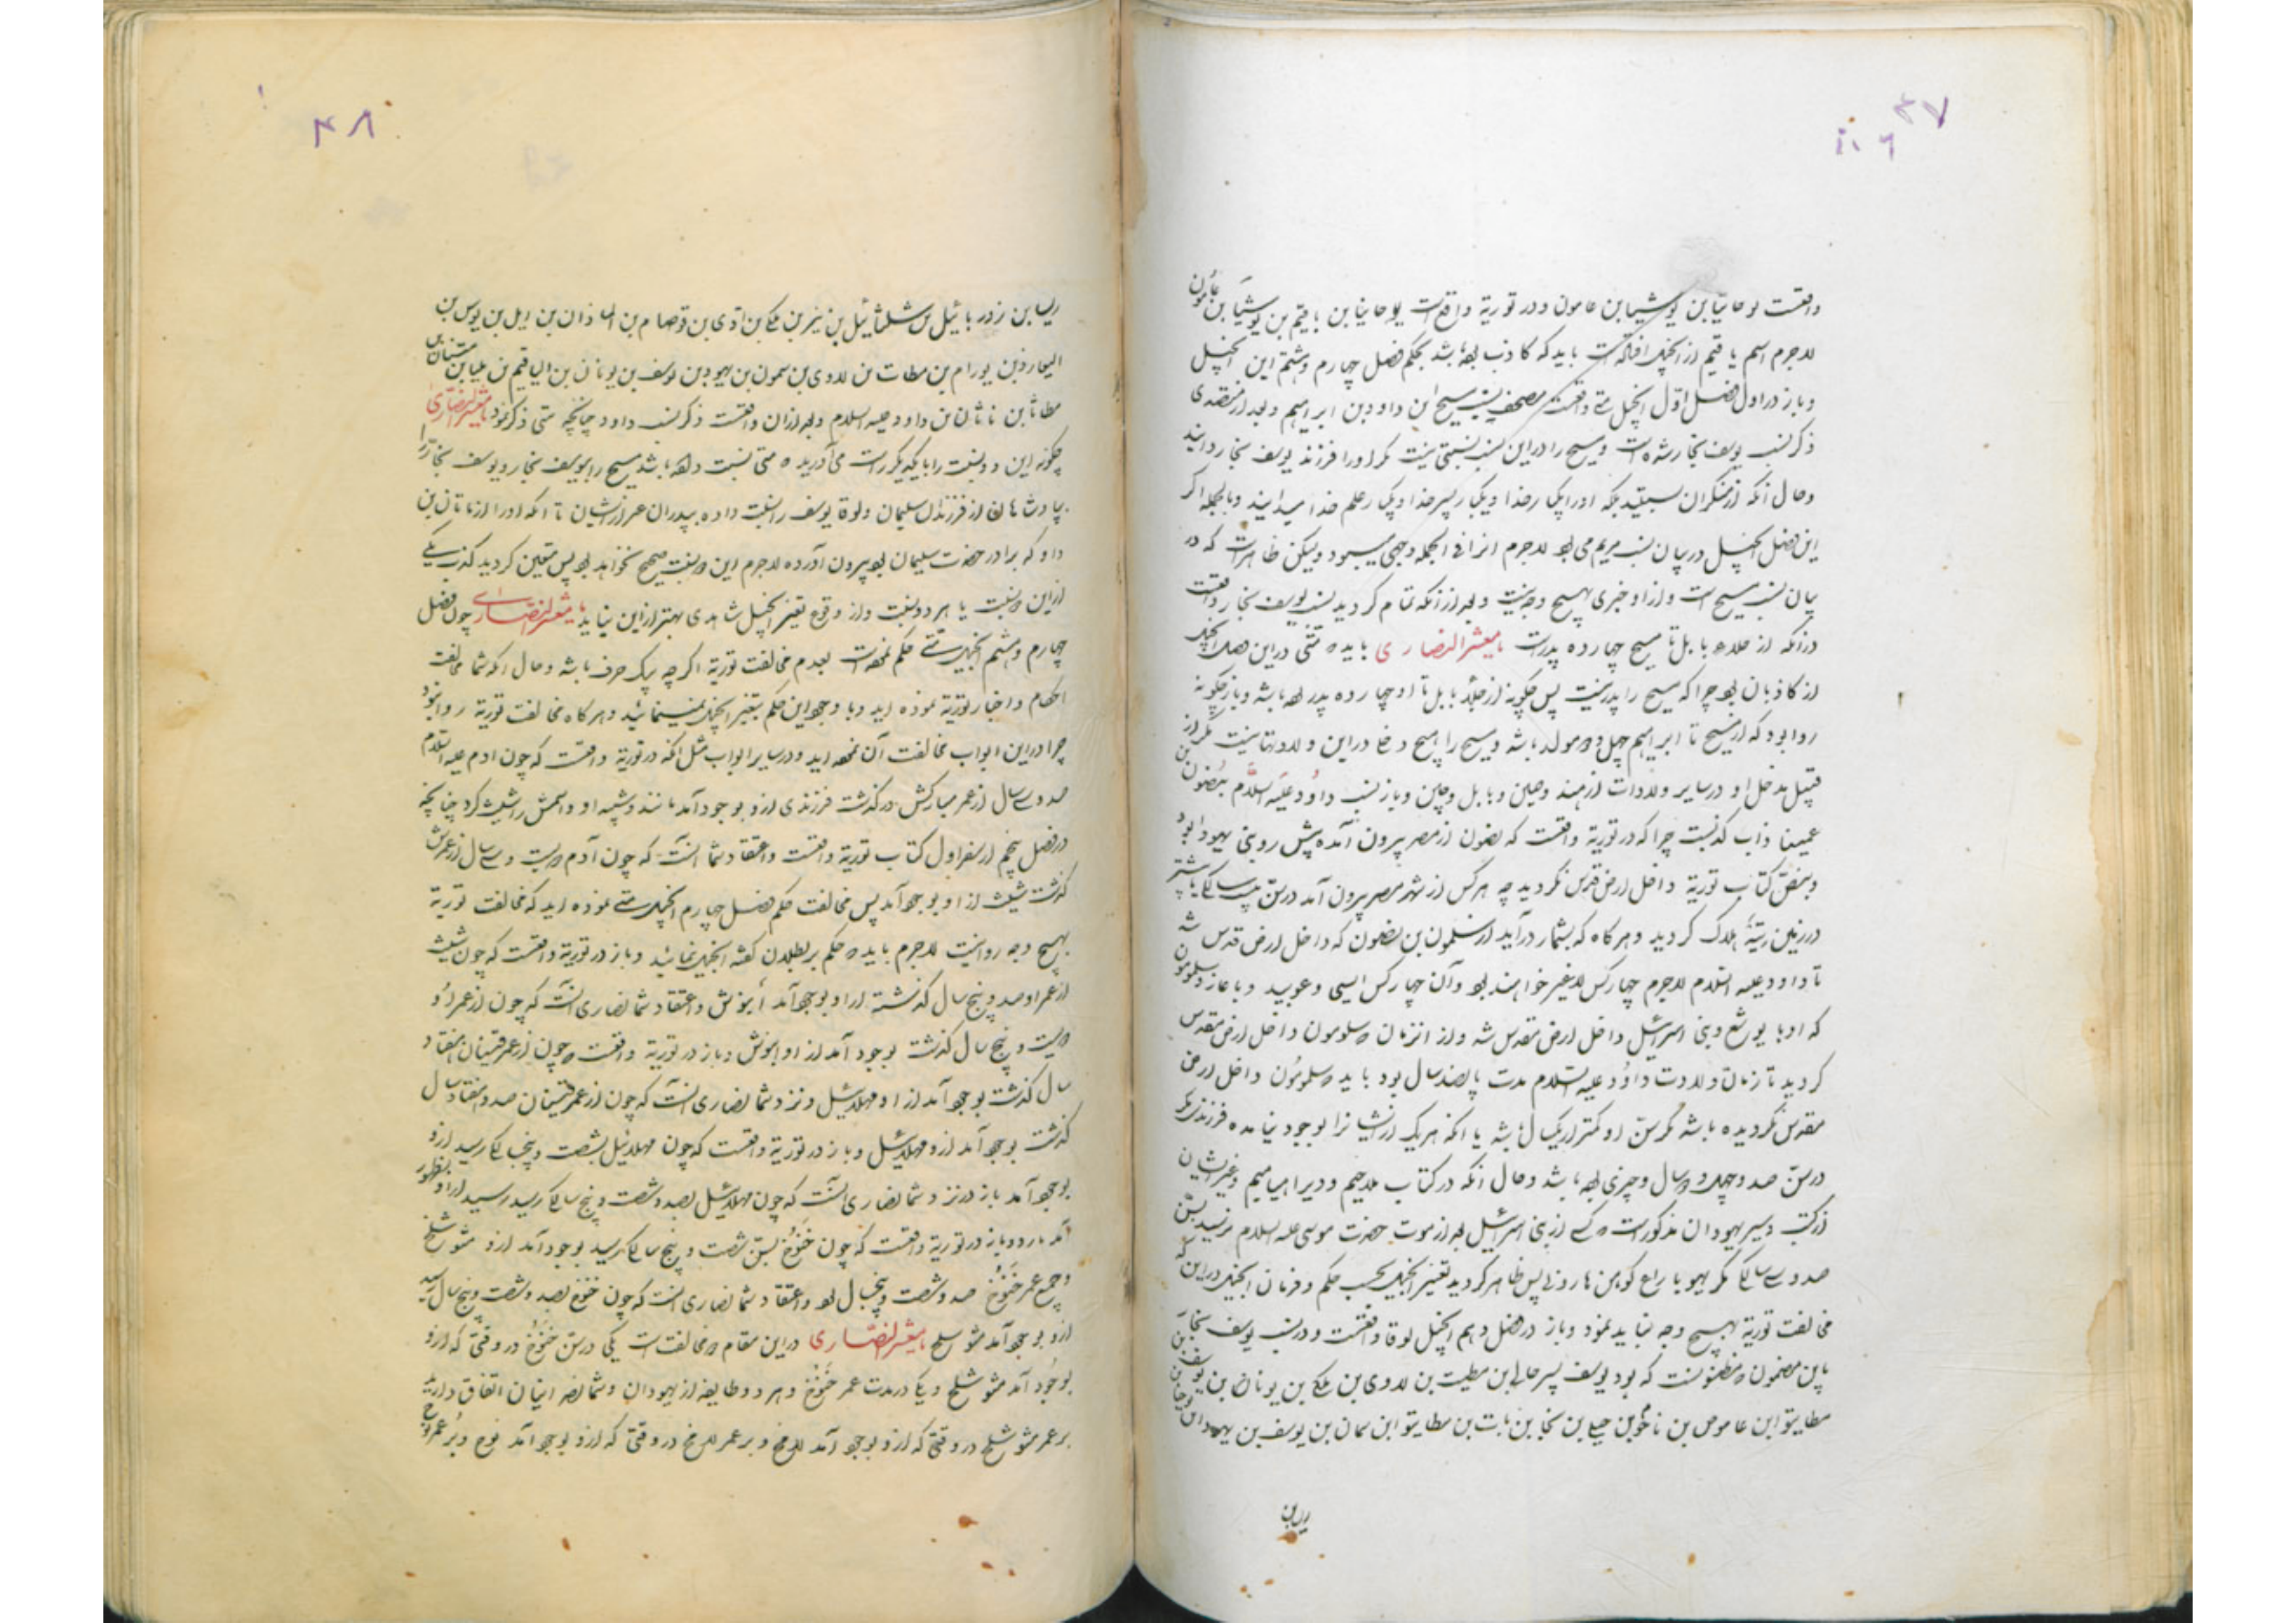 ۴۷
واقعست یوحانیا بن یوشیما بن عامون و در توریة واقع است یوحانیا بن یاقیم بن یوشیا بن عامون
لاجرم اسم یاقیم از انجیل افتاده است باید که کاذب بوده باشد بحکم فصل چهارم و هشتم این انجیل
و باز در اول فصل اول انجیل متی واقعست مصحف نسب مسیح ابن داود بن ابراهیم و بعد از
ذکر نسب یوسف نجار شده است و مسیح را در این نسب نسبتی نیست مگر او را فرزند یوسف نجار دانید
و حال آنکه از منکران نیستید بلکه او را یکبار خدا و یکبار پسر خدا و یکبار علم خدا میدانید و بالجمله اگر
این فصل انجیل در بیان نسب مریم می بود لاجرم انرا فی الجمله وجهی میبود ولیکن ظاهر است که در
بیان نسب مسیح است و از او خبری بهیچ وجه نیست و بعد از آنکه تمام گردید نسب یوسف نجار واقعست
در آنکه از جلاء بابل تا مسیح چهارده پدرست یا معشر النصاری باید که متی در این فصل انجیل
از کاذبان بود چرا که مسیح را پدر نیست پس چگونه از جلاء بابل تا او چهارده پدر بوده باشد و باز چگونه
روا بود که از مسیح تا ابراهیم چهل و دو مولد باشد و مسیح را هیچ دخل در این ولادتها نیست مگر از
قبیل مدخل او در سایر ولادات از هند و چین و بابل و باز نسب داود علیه السلام بنحشون بن
عمینا ذاب کذبست چرا که در توریة واقعست که نحشون از مصر بیرون آمده پیش رو بنی یهودا بود
و بنص کتاب توریة داخل ارض قدس نگردید چه هر کس از شهر مصر بیرون آمد در سن بیست سالگی یا بیشتر
در زمین تیه هلاک گردید و هرگاه که بشمار درآید از سلمون بن نحشون که داخل ارض قدس شد
تا داود علیه السلام لاجرم چهار کس لاغیر خواهند بود و آن چهار کس ایسی و عوبید و باعاز و سلومون
که او با یوشع و بنی اسرائیل داخل ارض مقدس شد و از انزمان که سلومون داخل ارض مقدس
گردید تا زمان ولادت داود علیه السلام مدت پانصد سال بود باید که سلومون داخل ارض
مقدس نگردیده باشد مگر سن او کمتر از یکسال باشد یا آنکه هر یک از ایشانرا بوجود نیامده فرزندی مگر
در سن صد و چهل و دو سال و چیزی بوده باشد و حال آنکه در کتاب ملاحیم و دیبراهیامیم و غیر ایشان
از کتب و سیر یهودان مذکور است که کسی از بنی اسرائیل بعد از موت حضرت موسی علیه السلام نرسید بسن
صد و سی سالگی مگر یهویاداع کوهن هارونی پس ظاهر گردید تغییر انجیل بحسب حکم و فرمان انجیل در این که
مخالفت توریة بهیچ وجه نباید نمود و باز در فصل دهم انجیل لوقا واقعست و در نسب یوسف نجار
باین مضمون که بود یوسف پسر حالی بن مطیت بن لاوی بن ملکی بن یونان بن یوسف بن
مطایتو ابن عاموص بن ناحوم بن حیلی بن نجا بن مات بن مطایتو ابن سمان بن یوسف بن یهودا بن یوحنا بن
ریسا بن
۴۸
ریسا بن زور بابئیل بن شلثائیل بن نیر بن ملکی بن ادی بن قوصام بن الماذان بن ایل بن یوس بن
الیعازر بن یورام بن مطات بن لاوی بن سمون بن یهود بن یوسف بن یونان بن الیاقیم بن ملیا بن
مطاثا بن ناثان بن داود علیه السلام و بعد از آن واقعست ذکر نسب داود چنانچه متی ذکر نمود یا معشر النصاری
چگونه این دو نسبت را با یکدیگر راست می آورید که متی نسبت داده باشد مسیح را بیوسف نجار و یوسف نجار را
بپادشاهان از فرزندان سلیمان و لوقا یوسف را نسبت داده بپدران غیر از ایشان تا آنکه او را از ناتان بن
داود که برادر حضرت سلیمان بود بیرون آورده لاجرم این دو نسبت صحیح نخواهد بود پس متعین گردید کذب یکی
از این دو نسبت یا هر دو نسبت و از وقوع تغییر انجیل شاهدی بهتر از این نیاید یا معشر النصاری چون فصل
چهارم و هشتم انجیل متی حکم نموده است بعدم مخالفت توریة اگر چه یک حرف باشد و حال آنکه شما مخالفت
احکام و اخبار توریة نموده اید و با وجود این حکم بتغییر انجیل نمینمائید و هرگاه مخالفت توریة روا نبود
چرا در این ابواب مخالفت آن نموده اید و در سایر ابواب مثل آنکه در توریة واقعست که چون ادم علیه السلام
صد و سی سال از عمر مبارکش درگذشت فرزندی ازو بوجود آمد مانند و شبیه او و اسمش را شیث کرد چنانچه
در فصل پنجم از سفر اول کتاب توریة واقعست و اعتقاد شما آنست که چون آدم دویست و سی سال از عمرش
گذشت شیث از او بوجود آمد پس مخالفت حکم فصل چهارم انجیل متی نموده اید که مخالفت توریة
بهیچ وجه روا نیست لاجرم باید که حکم بر بطلان گفته انجیل نمائید و باز در توریة واقعست که چون شیث
از عمر او صد و پنج سال گذشته از او بوجود آمد أنوش و اعتقاد شما نصاری آنست که چون از عمر او
دویست و پنج سال گذشت بوجود آمد از او انوش و باز در توریة واقعست که چون از عمر قینان هفتاد
سال گذشت بوجود آمد از او مهلائیل و نزد شما نصاری آنست که چون از عمر قینان صد و هفتاد سال
گذشت بوجود آمد ازو مهلائیل و باز در توریة واقعست که چون مهلائیل بشصت و پنج سالگی رسید ازو
بوجود آمد یارد و نزد شما نصاری آنست که چون مهلائیل بصد و شصت و پنج سالگی رسید از او بظهور
آمد یارد و باز در توریة واقعست که چون خنوخ بسن شصت و پنج سالگی رسید بوجود آمد ازو متوشلخ
و جمیع عمر خنوخ صد و شصت و پنجسال بود و اعتقاد شما نصاری آنست که چون خنوخ بصد و شصت و پنج سال رسید
ازو بوجود آمد متوشلخ یا معشر النصاری در این مقام دو مخالفت است یکی در سن خنوخ در وقتی که ازو
بوجود آمد متوشلخ و یکی در مدت عمر خنوخ و هر دو طایفه از یهودان و شما نصرانیان اتفاق دارید
بر عمر متوشلخ در وقتی که ازو بوجود آمد لامخ و بر عمر لامخ در وقتی که ازو بوجود آمد نوح و بر عمر نوح